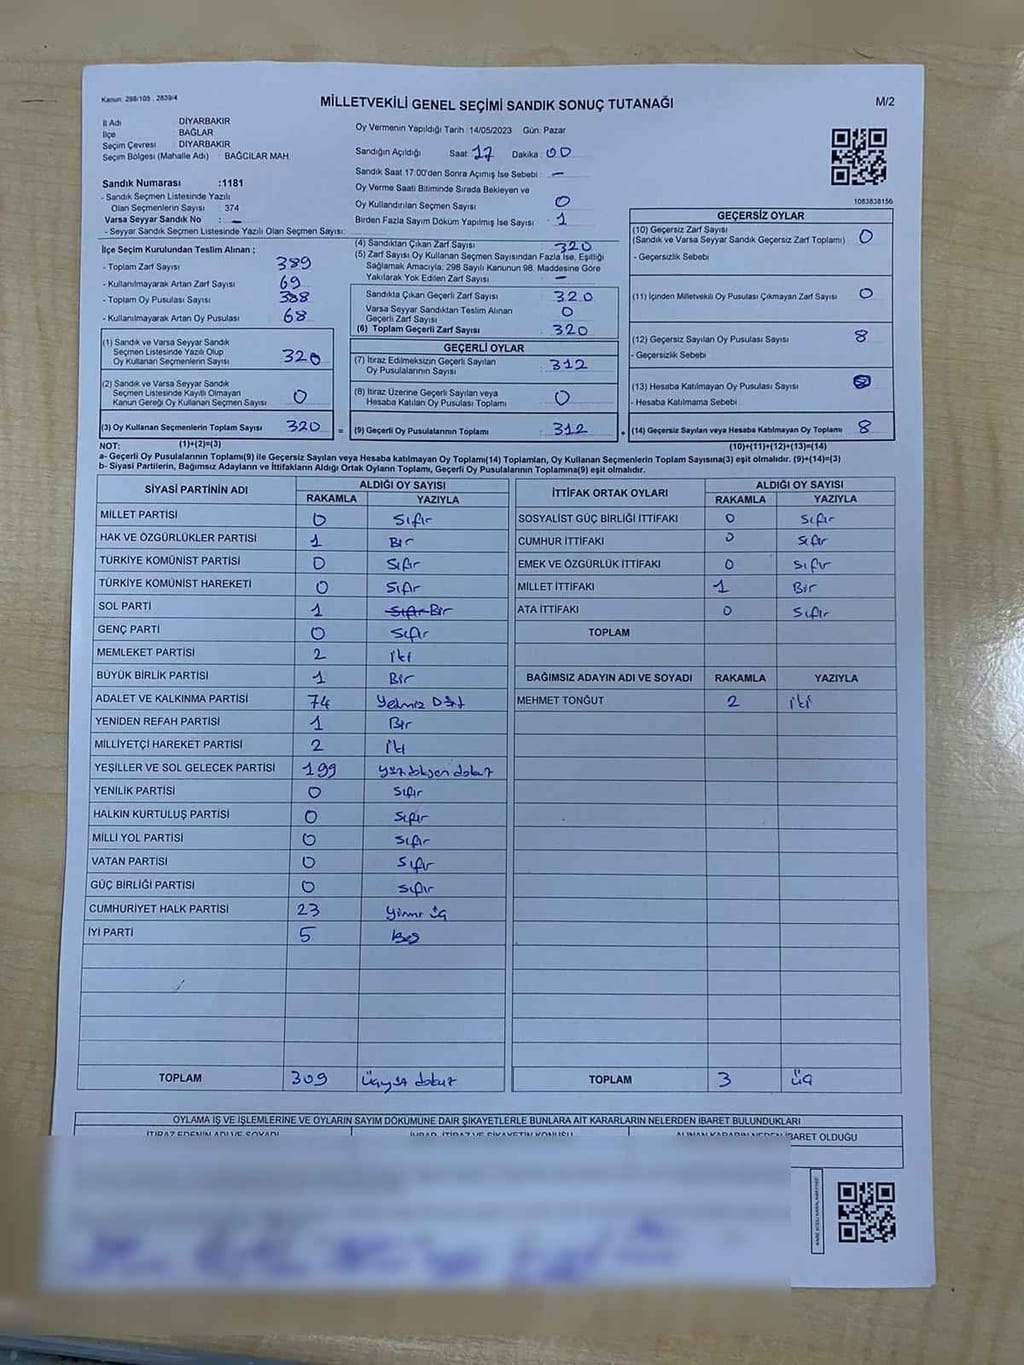 Kanun: 298/105 , 2839/4
MİLLETVEKİLİ GENEL SEÇİMİ SANDIK SONUÇ TUTANAĞI
M/2
İl Adı DİYARBAKIR
İlçe BAĞLAR
Seçim Çevresi DİYARBAKIR
Seçim Bölgesi (Mahalle Adı) : BAĞCILAR MAH.
Sandık Numarası :1181
- Sandık Seçmen Listesinde Yazılı
Olan Seçmenlerin Sayısı : 374
Varsa Seyyar Sandık No : -
- Seyyar Sandık Seçmen Listesinde Yazılı Olan Seçmen Sayısı:
Oy Vermenin Yapıldığı Tarih :14/05/2023 Gün: Pazar
Sandığın Açıldığı Saat: 17 Dakika: 00
Sandık Saat 17:00'den Sonra Açılmış İse Sebebi : -
Oy Verme Saati Bitiminde Sırada Bekleyen ve
Oy Kullandırılan Seçmen Sayısı : 0
Birden Fazla Sayım Döküm Yapılmış İse Sayısı : 1
1083838156
İlçe Seçim Kurulundan Teslim Alınan ;
- Toplam Zarf Sayısı : 389
- Kullanılmayarak Artan Zarf Sayısı : 69
- Toplam Oy Pusulası Sayısı : 388
- Kullanılmayarak Artan Oy Pusulası : 68
(1) Sandık ve Varsa Seyyar Sandık
Seçmen Listesinde Yazılı Olup
Oy Kullanan Seçmenlerin Sayısı : 320
(2) Sandık ve Varsa Seyyar Sandık
Seçmen Listesinde Kayıtlı Olmayan
Kanun Gereği Oy Kullanan Seçmen Sayısı : 0
(3) Oy Kullanan Seçmenlerin Toplam Sayısı : 320
(4) Sandıktan Çıkan Zarf Sayısı : 320
(5) Zarf Sayısı Oy Kullanan Seçmen Sayısından Fazla İse, Eşitliği
Sağlamak Amacıyla; 298 Sayılı Kanunun 98. Maddesine Göre
Yakılarak Yok Edilen Zarf Sayısı : -
Sandıkta Çıkan Geçerli Zarf Sayısı : 320
Varsa Seyyar Sandıktan Teslim Alınan
Geçerli Zarf Sayısı : 0
(6) Toplam Geçerli Zarf Sayısı : 320
GEÇERLİ OYLAR
(7) İtiraz Edilmeksizin Geçerli Sayılan
Oy Pusulalarının Sayısı : 312
(8) İtiraz Üzerine Geçerli Sayılan veya
Hesaba Katılan Oy Pusulası Toplamı : 0
= (9) Geçerli Oy Pusulalarının Toplamı : 312
GEÇERSİZ OYLAR
(10) Geçersiz Zarf Sayısı
(Sandık ve Varsa Seyyar Sandık Geçersiz Zarf Toplamı) : 0
- Geçersizlik Sebebi
(11) İçinden Milletvekili Oy Pusulası Çıkmayan Zarf Sayısı : 0
(12) Geçersiz Sayılan Oy Pusulası Sayısı : 8
- Geçersizlik Sebebi
(13) Hesaba Katılmayan Oy Pusulası Sayısı :
- Hesaba Katılmama Sebebi
+ (14) Geçersiz Sayılan veya Hesaba Katılmayan Oy Toplamı : 8
NOT: (1)+(2)=(3) (10)+(11)+(12)+(13)=(14)
a- Geçerli Oy Pusulalarının Toplamı(9) ile Geçersiz Sayılan veya Hesaba katılmayan Oy Toplamı(14) Toplamları, Oy Kullanan Seçmenlerin Toplam Sayısına(3) eşit olmalıdır. (9)+(14)=(3)
b- Siyasi Partilerin, Bağımsız Adayların ve İttifakların Aldığı Ortak Oyların Toplamı, Geçerli Oy Pusulalarının Toplamına(9) eşit olmalıdır.
SİYASİ PARTİNİN ADI ALDIĞI OY SAYISI
RAKAMLA YAZIYLA
MİLLET PARTİSİ 0 Sıfır
HAK VE ÖZGÜRLÜKLER PARTİSİ 1 Bir
TÜRKİYE KOMÜNİST PARTİSİ 0 Sıfır
TÜRKİYE KOMÜNİST HAREKETİ 0 Sıfır
SOL PARTİ 1 Sıfır Bir
GENÇ PARTİ 0 Sıfır
MEMLEKET PARTİSİ 2 iki
BÜYÜK BİRLİK PARTİSİ 1 Bir
ADALET VE KALKINMA PARTİSİ 74 Yetmiş Dört
YENİDEN REFAH PARTİSİ 1 Bir
MİLLİYETÇİ HAREKET PARTİSİ 2 iki
YEŞİLLER VE SOL GELECEK PARTİSİ 199 yüzdoksan dokuz
YENİLİK PARTİSİ 0 Sıfır
HALKIN KURTULUŞ PARTİSİ 0 Sıfır
MİLLİ YOL PARTİSİ 0 Sıfır
VATAN PARTİSİ 0 Sıfır
GÜÇ BİRLİĞİ PARTİSİ 0 Sıfır
CUMHURİYET HALK PARTİSİ 23 Yirmi üç
İYİ PARTİ 5 Beş
TOPLAM 309 Üçyüz dokuz
İTTİFAK ORTAK OYLARI ALDIĞI OY SAYISI
RAKAMLA YAZIYLA
SOSYALİST GÜÇ BİRLİĞİ İTTİFAKI 0 Sıfır
CUMHUR İTTİFAKI 0 Sıfır
EMEK VE ÖZGÜRLÜK İTTİFAKI 0 Sıfır
MİLLET İTTİFAKI 1 Bir
ATA İTTİFAKI 0 Sıfır
TOPLAM
BAĞIMSIZ ADAYIN ADI VE SOYADI RAKAMLA YAZIYLA
MEHMET TONĞUT 2 iki
TOPLAM 3 üç
OYLAMA İŞ VE İŞLEMLERİNE VE OYLARIN SAYIM DÖKÜMÜNE DAİR ŞİKAYETLERLE BUNLARA AİT KARARLARIN NELERDEN İBARET BULUNDUKLARI
İTİRAZ EDENİN ADI VE SOYADI İHBAR, İTİRAZ VE ŞİKAYETİN KONUSU ALINAN KARARIN NEDEN İBARET OLDUĞU